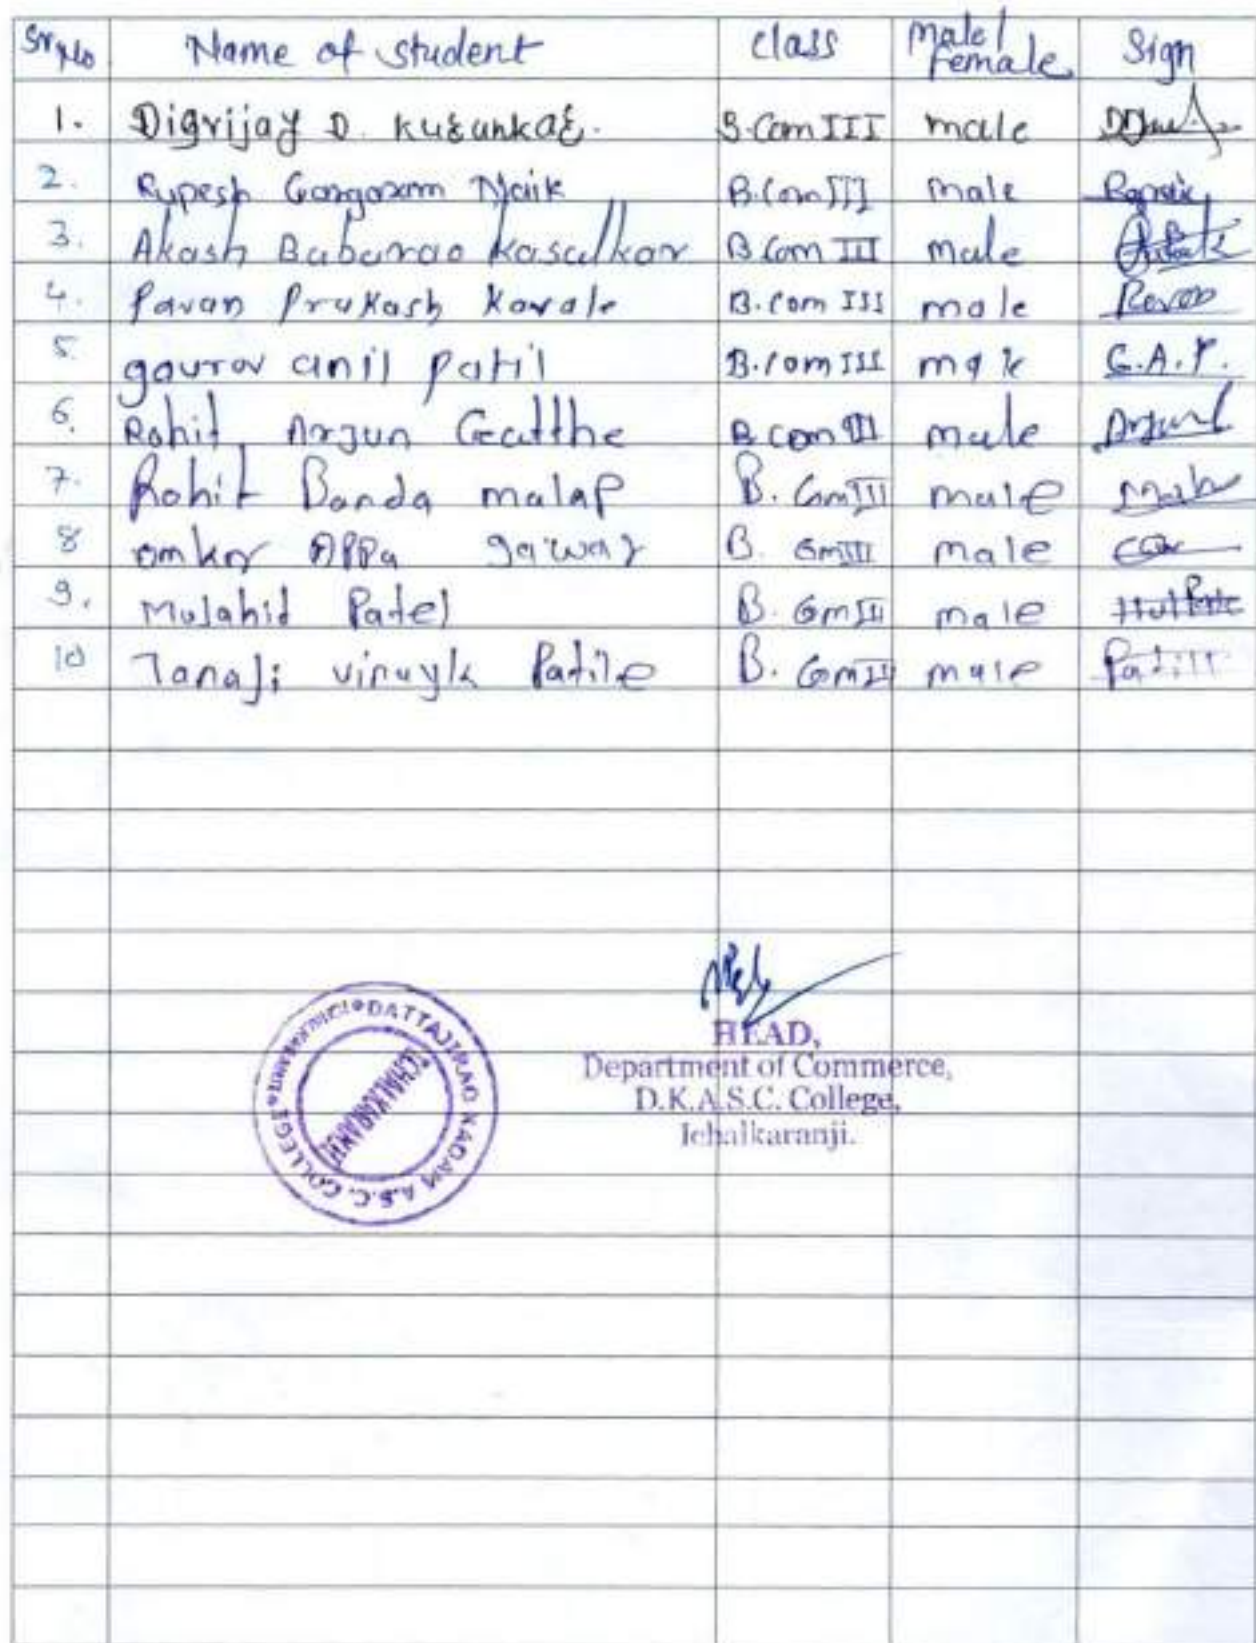 Sr No Name of student class male/female Sign
1. Digvijay D. Kurunkar. B.Com III male
2. Rupesh Gangaram Naik B.Com III male
3. Akash Baburao Kasalkar B.Com III male
4. Pavan Prakash Kavale B.Com III male
5 gaurav anil patil B.Com III male G.A.P.
6. Rohit Arjun Gatthe B.Com III male
7. Rohit Banda malap B.Com III male
8 omkar Appa male
9. Mujahid Patel B.Com III male
10 Tanaji vinayk Patile B.Com III male Patill
DATTAJIRAO KADAM A.S.C. COLLEGE
ICHALKARANJI
HEAD,
Department of Commerce,
D.K.A.S.C. College,
Ichalkaranji.